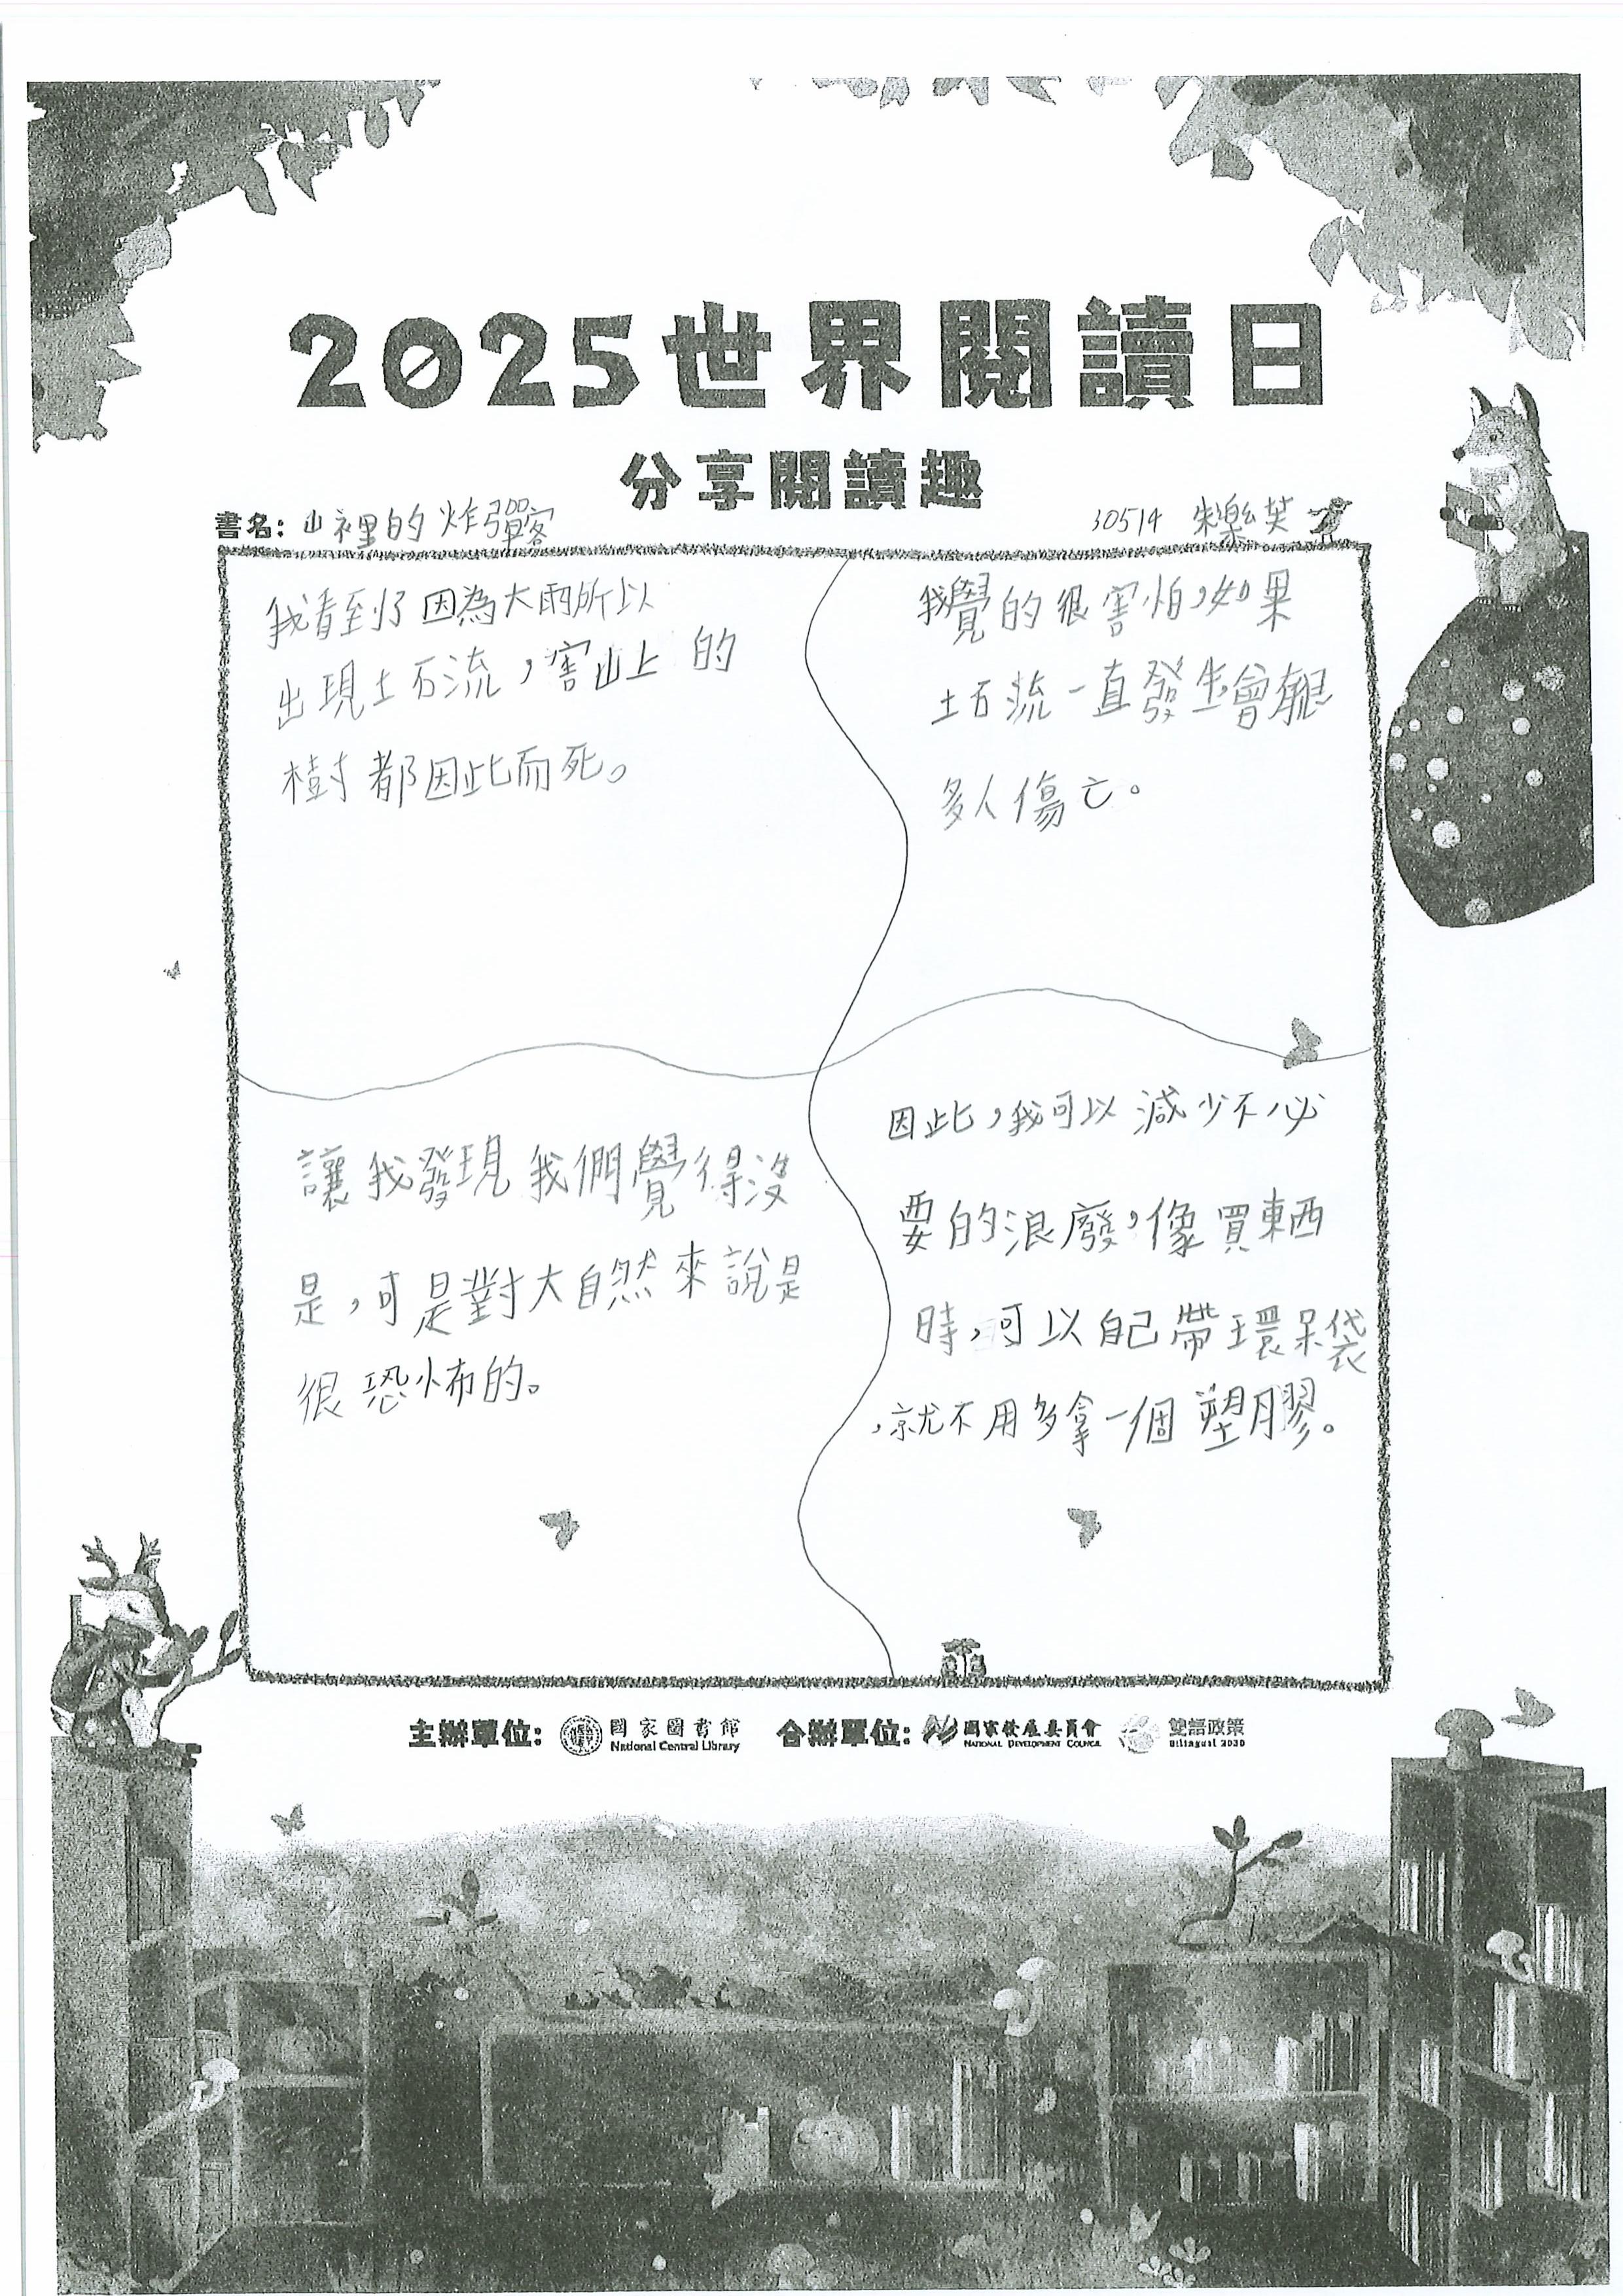 2025世界閱讀日
分享閱讀趣
書名：山裡的炸彈客
30514 朱樂芙
我看到了因為大雨所以
出現土石流，害山上的
樹都因此而死。
我覺的很害怕，如果
土石流一直發生會有很
多人傷亡。
讓我發現我們覺得沒
是，可是對大自然來說是
很恐怖的。
因此，我可以減少不必
要的浪廢，像買東西
時，可以自己帶環呆袋
，就不用多拿一個塑膠。
主辦單位：國家圖書館 National Central Library 合辦單位：國家發展委員會 NATIONAL DEVELOPMENT COUNCIL 雙語政策 Bilingual 2030